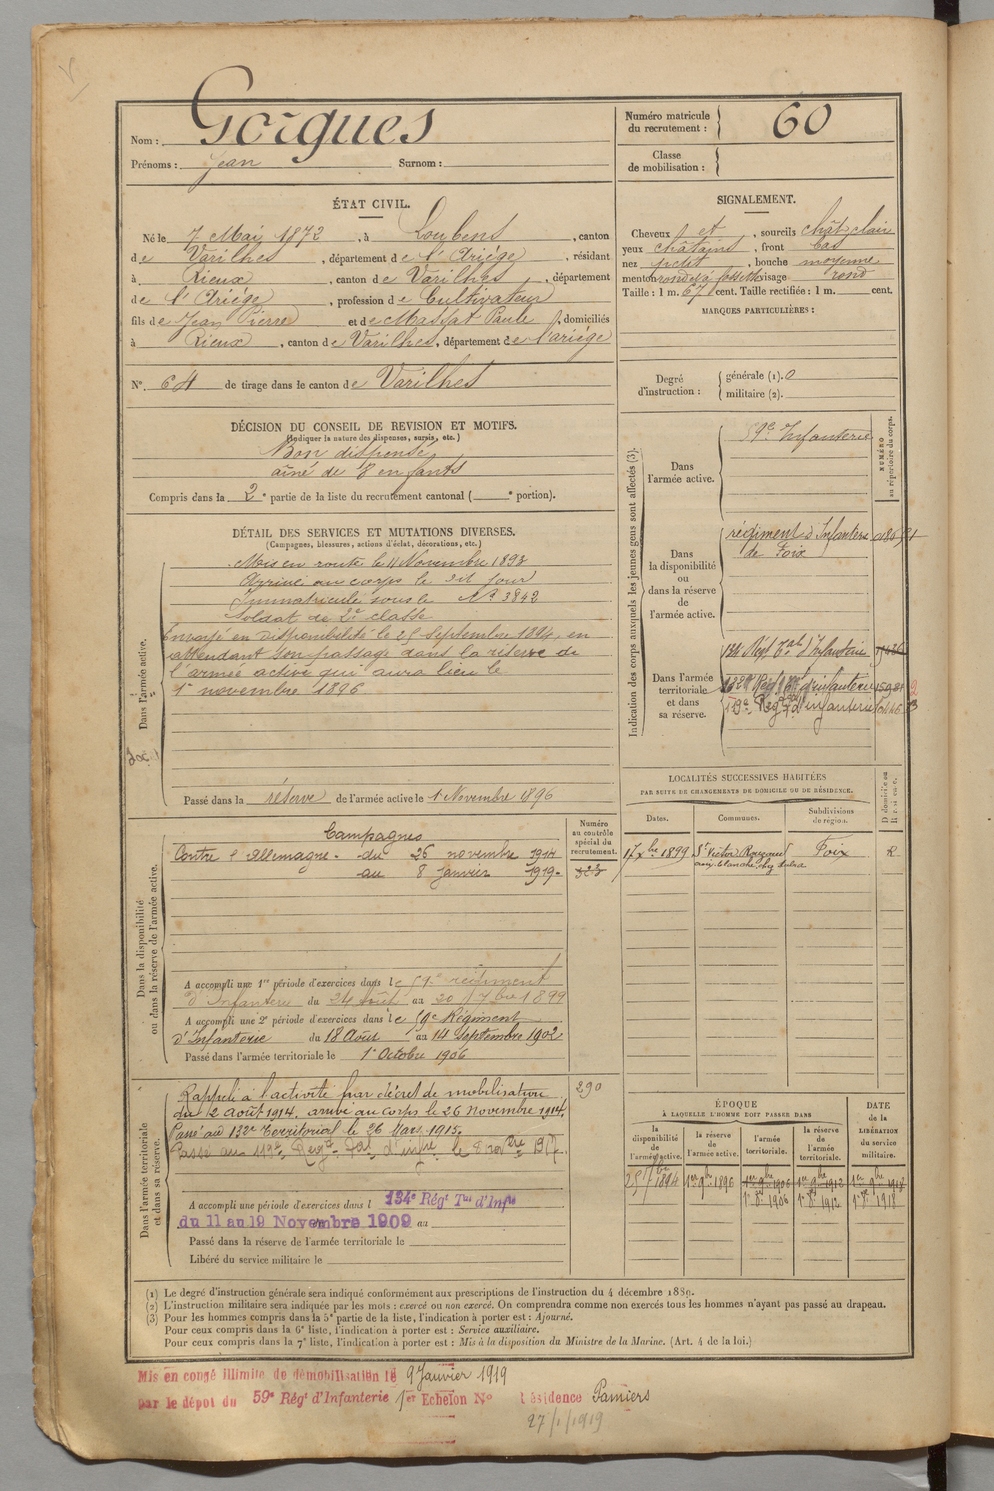 Nom : Gorgues
Prénoms : Jean Surnom :
Numéro matricule du recrutement : 60
Classe de mobilisation :
ÉTAT CIVIL.
Né le 7 Mai 1872, à Loubens, canton
de Varilhes, département de l'Ariège, résidant
à Rieux, canton de Varilhes, département
de l'Ariège, profession de Cultivateur
fils de Jean Pierre et de Massat Paule, domiciliés
à Rieux, canton de Varilhes, département de l'ariège
N° 64 de tirage dans le canton de Varilhes
SIGNALEMENT.
Cheveux et, sourcils chât clair
yeux châtains, front bas
nez petit, bouche moyenne
menton rond et à fossette visage rond
Taille : 1 m. 67 cent. Taille rectifiée : 1 m. cent.
MARQUES PARTICULIÈRES :
Degré d'instruction : générale (1). 0
militaire (2).
DÉCISION DU CONSEIL DE REVISION ET MOTIFS.
(Indiquer la nature des dispenses, sursis, etc.)
Bon dispensé
aîné de 7 enfants
Compris dans la 2e partie de la liste du recrutement cantonal ( e portion).
DÉTAIL DES SERVICES ET MUTATIONS DIVERSES.
(Campagnes, blessures, actions d'éclat, décorations, etc.)
Dans l'armée active.
Mis en route le 11 Novembre 1893
Arrivé au corps le dit jour
Immatriculé sous le N° 3842
Soldat de 2e classe
Envoyé en disponibilité le 25 Septembre 1894, en
attendant son passage dans la réserve de
l'armée active qui aura lieu le
1er novembre 1896
Passé dans la réserve de l'armée active le 1 Novembre 1896
Indication des corps auxquels les jeunes gens sont affectés (3).
NUMÉRO au répertoire du corps.
Dans l'armée active.
59e Infanterie
Dans la disponibilité ou dans la réserve de l'armée active.
régiment d'Infanterie
de Foix
Dans l'armée territoriale et dans sa réserve.
134 Régt Tal d'Infanterie
132e Régt Tal d'infanterie
119e Régt Tal d'infanterie
LOCALITÉS SUCCESSIVES HABITÉES
PAR SUITE DE CHANGEMENTS DE DOMICILE OU DE RÉSIDENCE.
Dates. Communes. Subdivisions de région. D domicile ou R résidence.
17 Xbre 1899 St Victor Rouzaud Foix R
Dans la disponibilité ou dans la réserve de l'armée active.
Numéro au contrôle spécial du recrutement.
Campagnes
Contre l'Allemagne - du 26 novembre 1914
au 8 Janvier 1919 -
A accompli une 1re période d'exercices dans le 59e régiment
d'Infanterie du 24 Août au 20 7bre 1899
A accompli une 2e période d'exercices dans le 59e Régiment
d'Infanterie du 18 Août au 14 septembre 1902
Passé dans l'armée territoriale le 1er Octobre 1906
Dans l'armée territoriale et dans sa réserve.
290
Rappelé à l'activité par décret de mobilisation
du 2 août 1914. arrivé au corps le 26 novembre 1914.
Passé au 132e Territorial le 26 Mars 1915.
Passé au 119e Régt Tal d'infie le 8 novbre 1917.
A accompli une période d'exercices dans l 134e Régt Tal d'Infie
du 11 au 19 Novembre 1909 au
Passé dans la réserve de l'armée territoriale le
Libéré du service militaire le
ÉPOQUE
À LAQUELLE L'HOMME DOIT PASSER DANS
DATE de la LIBÉRATION du service militaire.
la disponibilité de l'armée active. la réserve de l'armée active. l'armée territoriale. la réserve de l'armée territoriale.
25 7bre 1894 1er 9bre 1896 1er 9bre 1906 1er 9bre 1912 1er 9bre 1918
1er 8bre 1906 1er 8bre 1912 1er 8bre 1918
(1) Le degré d'instruction générale sera indiqué conformément aux prescriptions de l'instruction du 4 décembre 1889.
(2) L'instruction militaire sera indiquée par les mots : exercé ou non exercé. On comprendra comme non exercés tous les hommes n'ayant pas passé au drapeau.
(3) Pour les hommes compris dans la 5e partie de la liste, l'indication à porter est : Ajourné.
Pour ceux compris dans la 6e liste, l'indication à porter est : Service auxiliaire.
Pour ceux compris dans la 7e liste, l'indication à porter est : Mis à la disposition du Ministre de la Marine. (Art. 4 de la loi.)
Mis en congé illimité de démobilisation le 9 Janvier 1919
par le dépôt du 59e Régt d'Infanterie 1er Echelon N° résidence Pamiers
27/1/1919